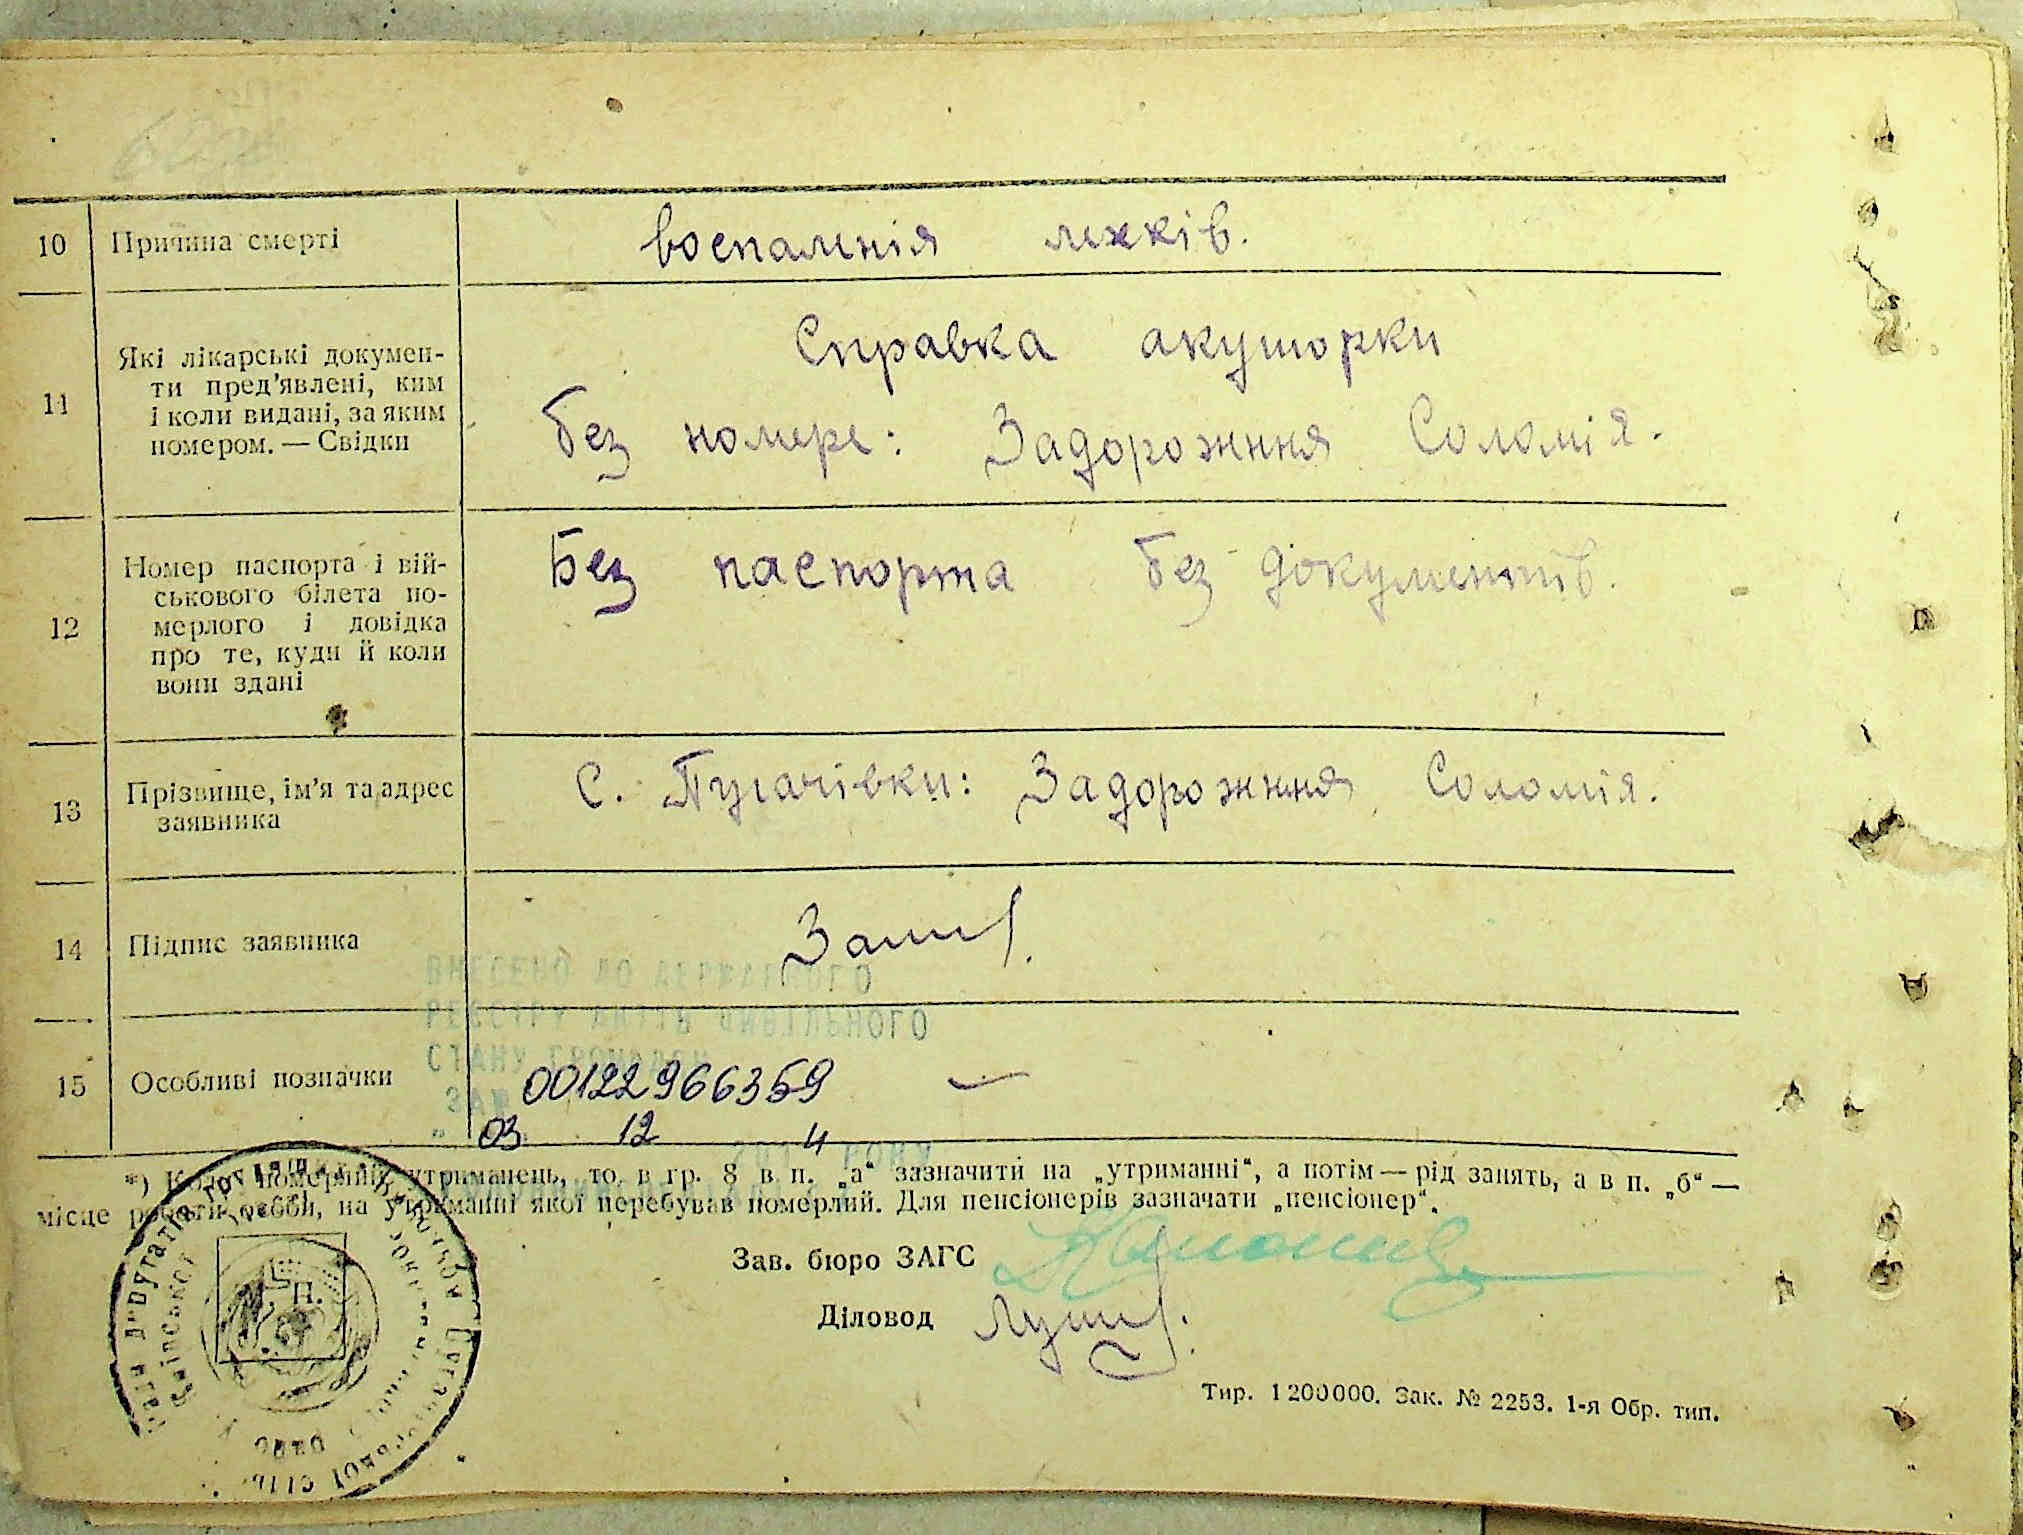 10 Причина смерті
воспаленія легків.
11 Які лікарські докумен-
ти пред’явлені, ким
і коли видані, за яким
номером. — Свідки
Справка акушорки
без номере: Задорожння Соломія.
12 Номер паспорта і вій-
ськового білета по-
мерлого і довідка
про те, куди й коли
вони здані
Без паспорта без документів.
13 Прізвище, ім’я та адрес
заявника
С. Пугачівки: Задорожння Соломія.
14 Підпис заявника
ВНЕСЕНО ДО ДЕРЖАВНОГО
РЕЄСТРУ АКТІВ ЦИВІЛЬНОГО
СТАНУ ГРОМАДЯН
15 Особливі позначки
00122966359
03 12 4
*) Коли померлий утриманець, то в гр. 8 в п. „а“ зазначити на „утриманні“, а потім — рід занять, а в п. „б“ —
місце роботи особи, на утриманні якої перебував померлий. Для пенсіонерів зазначати „пенсіонер“.
Зав. бюро ЗАГС
Діловод
П.
Тир. 1200000. Зак. № 2253. 1-я Обр. тип.